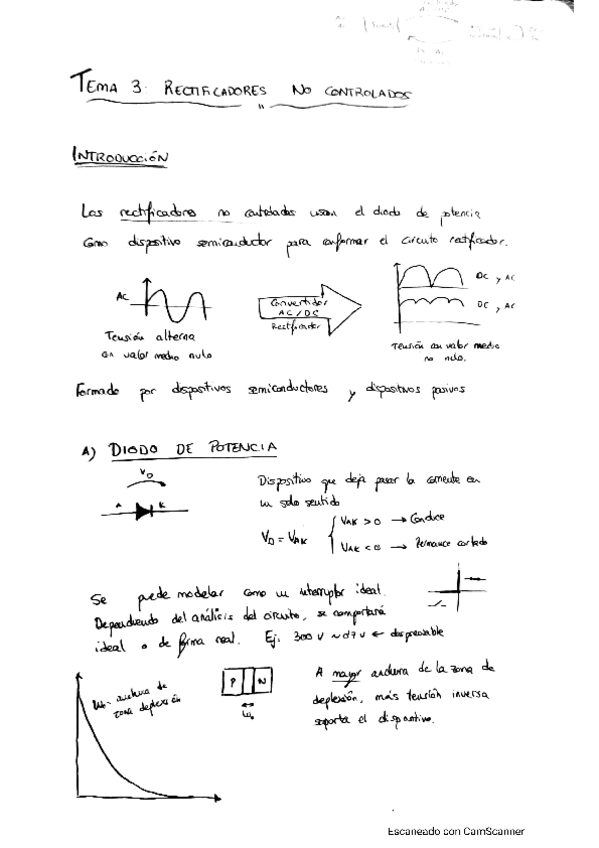 TEMA 3: RECTIFICADORES NO CONTROLADOS
INTRODUCCIÓN
Los rectificadores no controlados usan el diodo de potencia
como dispositivo semiconductor para conformar el circuito rectificador.
AC
Tensión alterna
con valor medio nulo
Convertidor
AC/DC
Rectificador
DC y AC
DC y AC
Tensión con valor medio
no nulo.
Formado por dispositivos semiconductores y dispositivos pasivos
A) DIODO DE POTENCIA
VD
A K
Dispositivo que deja pasar la corriente en
un solo sentido
VD = VAK
VAK > 0 → Conduce
VAK < 0 → Permanece cortado
Se puede modelar como un interruptor ideal.
Dependiendo del análisis del circuito, se comportará
ideal o de forma real. Ej: 300 V ~ 0'7 V ← despreciable
anchura de
zona deplexión
P N
A mayor anchura de la zona de
deplexión, más tensión inversa
soporta el dispositivo.
Escaneado con CamScanner